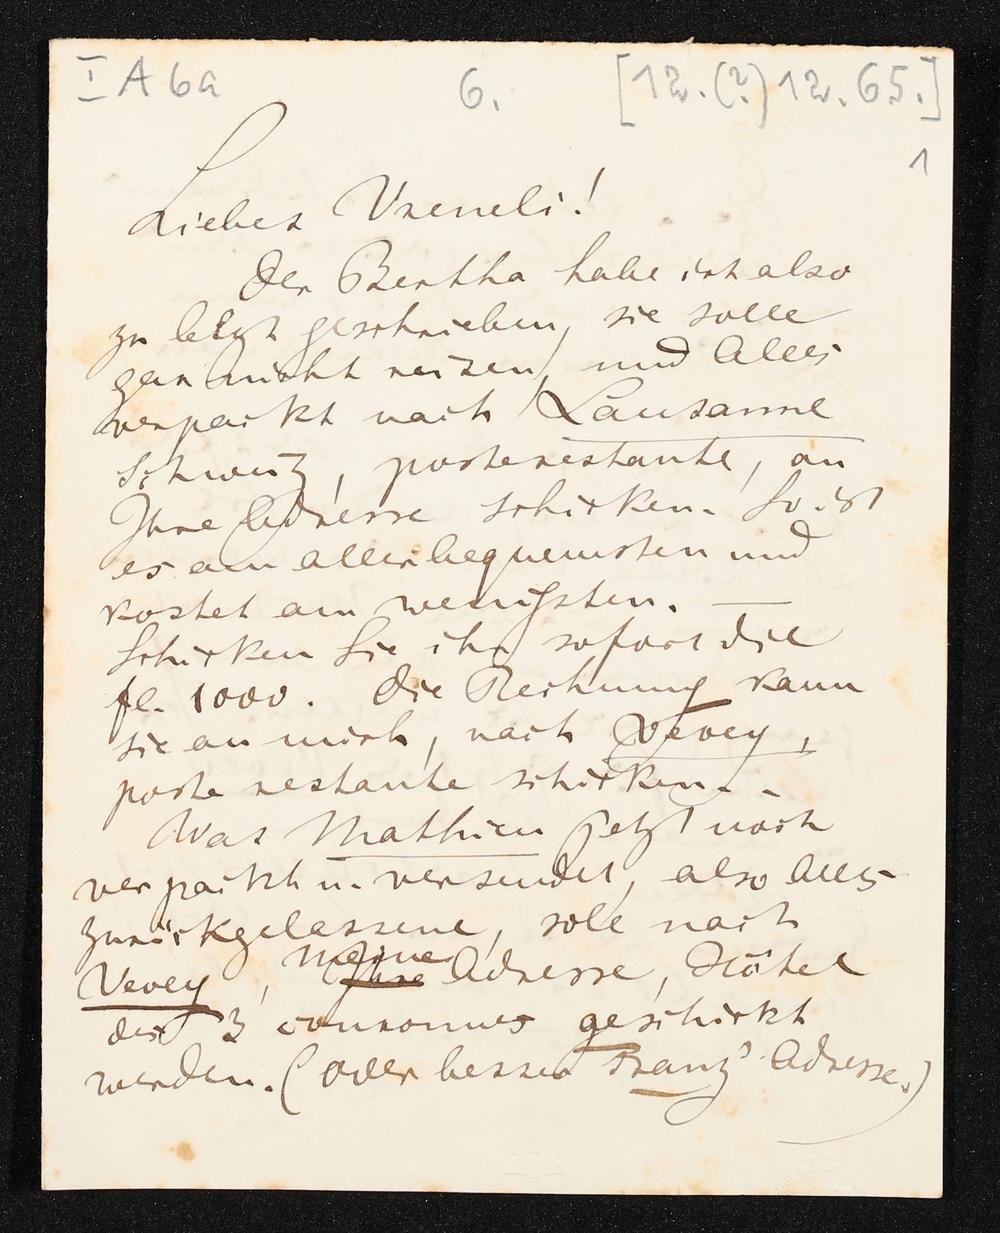 I A 6a 6. [12.(?)12.65.]
1
Liebes Vreneli!
Der Bertha habe ich also
zu letzt geschrieben, sie solle
gar nicht reisen, und Alles
verpackt nach Lausanne
Schweiz, poste restante, an
Ihre Adresse schicken. So ist
es am allerbequemsten und
kostet am wenigsten. —
Schicken Sie ihr sofort die
fl. 1000. Die Rechnung kann
sie an mich, nach Vevey,
poste restante schicken. -
Was Mathieu jetzt noch
verpackt u. versendet, also Alles
zurückgelassene, soll nach
Vevey, Ihre meine Adresse, Hôtel
des 3 couronnes geschickt
werden. (Oder besser Franz' Adresse.)